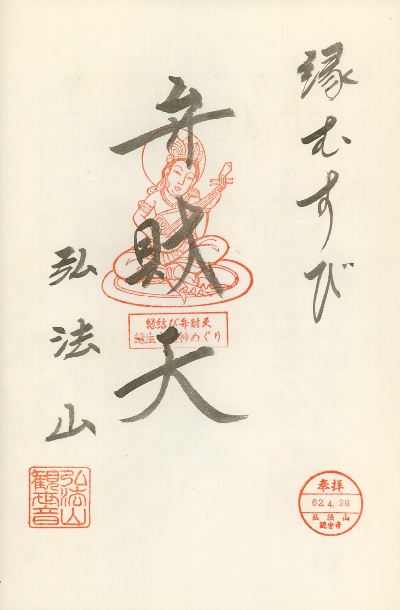 縁むすび
弁財天
弘法山
縁結び弁財天
神めぐり
奉拝
62.4.29
弘法山
観世音
弘法山
観世音